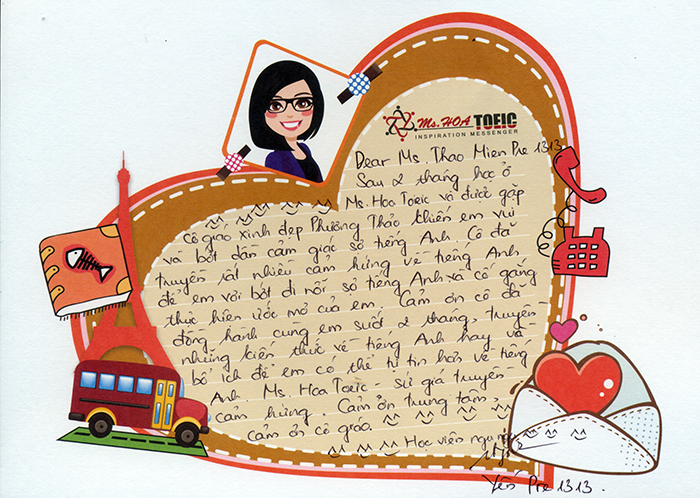 Ms. HOA TOEIC
INSPIRATION MESSENGER
Dear Ms. Thao Mien Pre 1313
Sau 2 tháng học ở
Ms. Hoa Toeic và được gặp
cô giáo xinh đẹp Phương Thảo khiến em vui
và bớt dần cảm giác sợ tiếng Anh. Cô đã
truyền rất nhiều cảm hứng về tiếng Anh
để em vơi bớt đi nỗi sợ tiếng Anh và cố gắng
thực hiện ước mơ của em. Cảm ơn cô đã
đồng hành cùng em suốt 2 tháng, truyền
những kiến thức về tiếng Anh hay và
bổ ích để em có thể tự tin hơn về tiếng
Anh. Ms. Hoa Toeic - sứ giả truyền
cảm hứng. Cảm ơn trung tâm,
cảm ơn cô giáo.
Học viên
Yến Pre 1313.